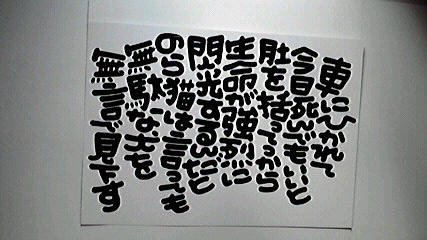 車にひかれて
今日死んでもいいと
肚を括ってっから
生命が強烈に
閃光するんだと
のら猫は言っても
無駄な太い
無言で見下す